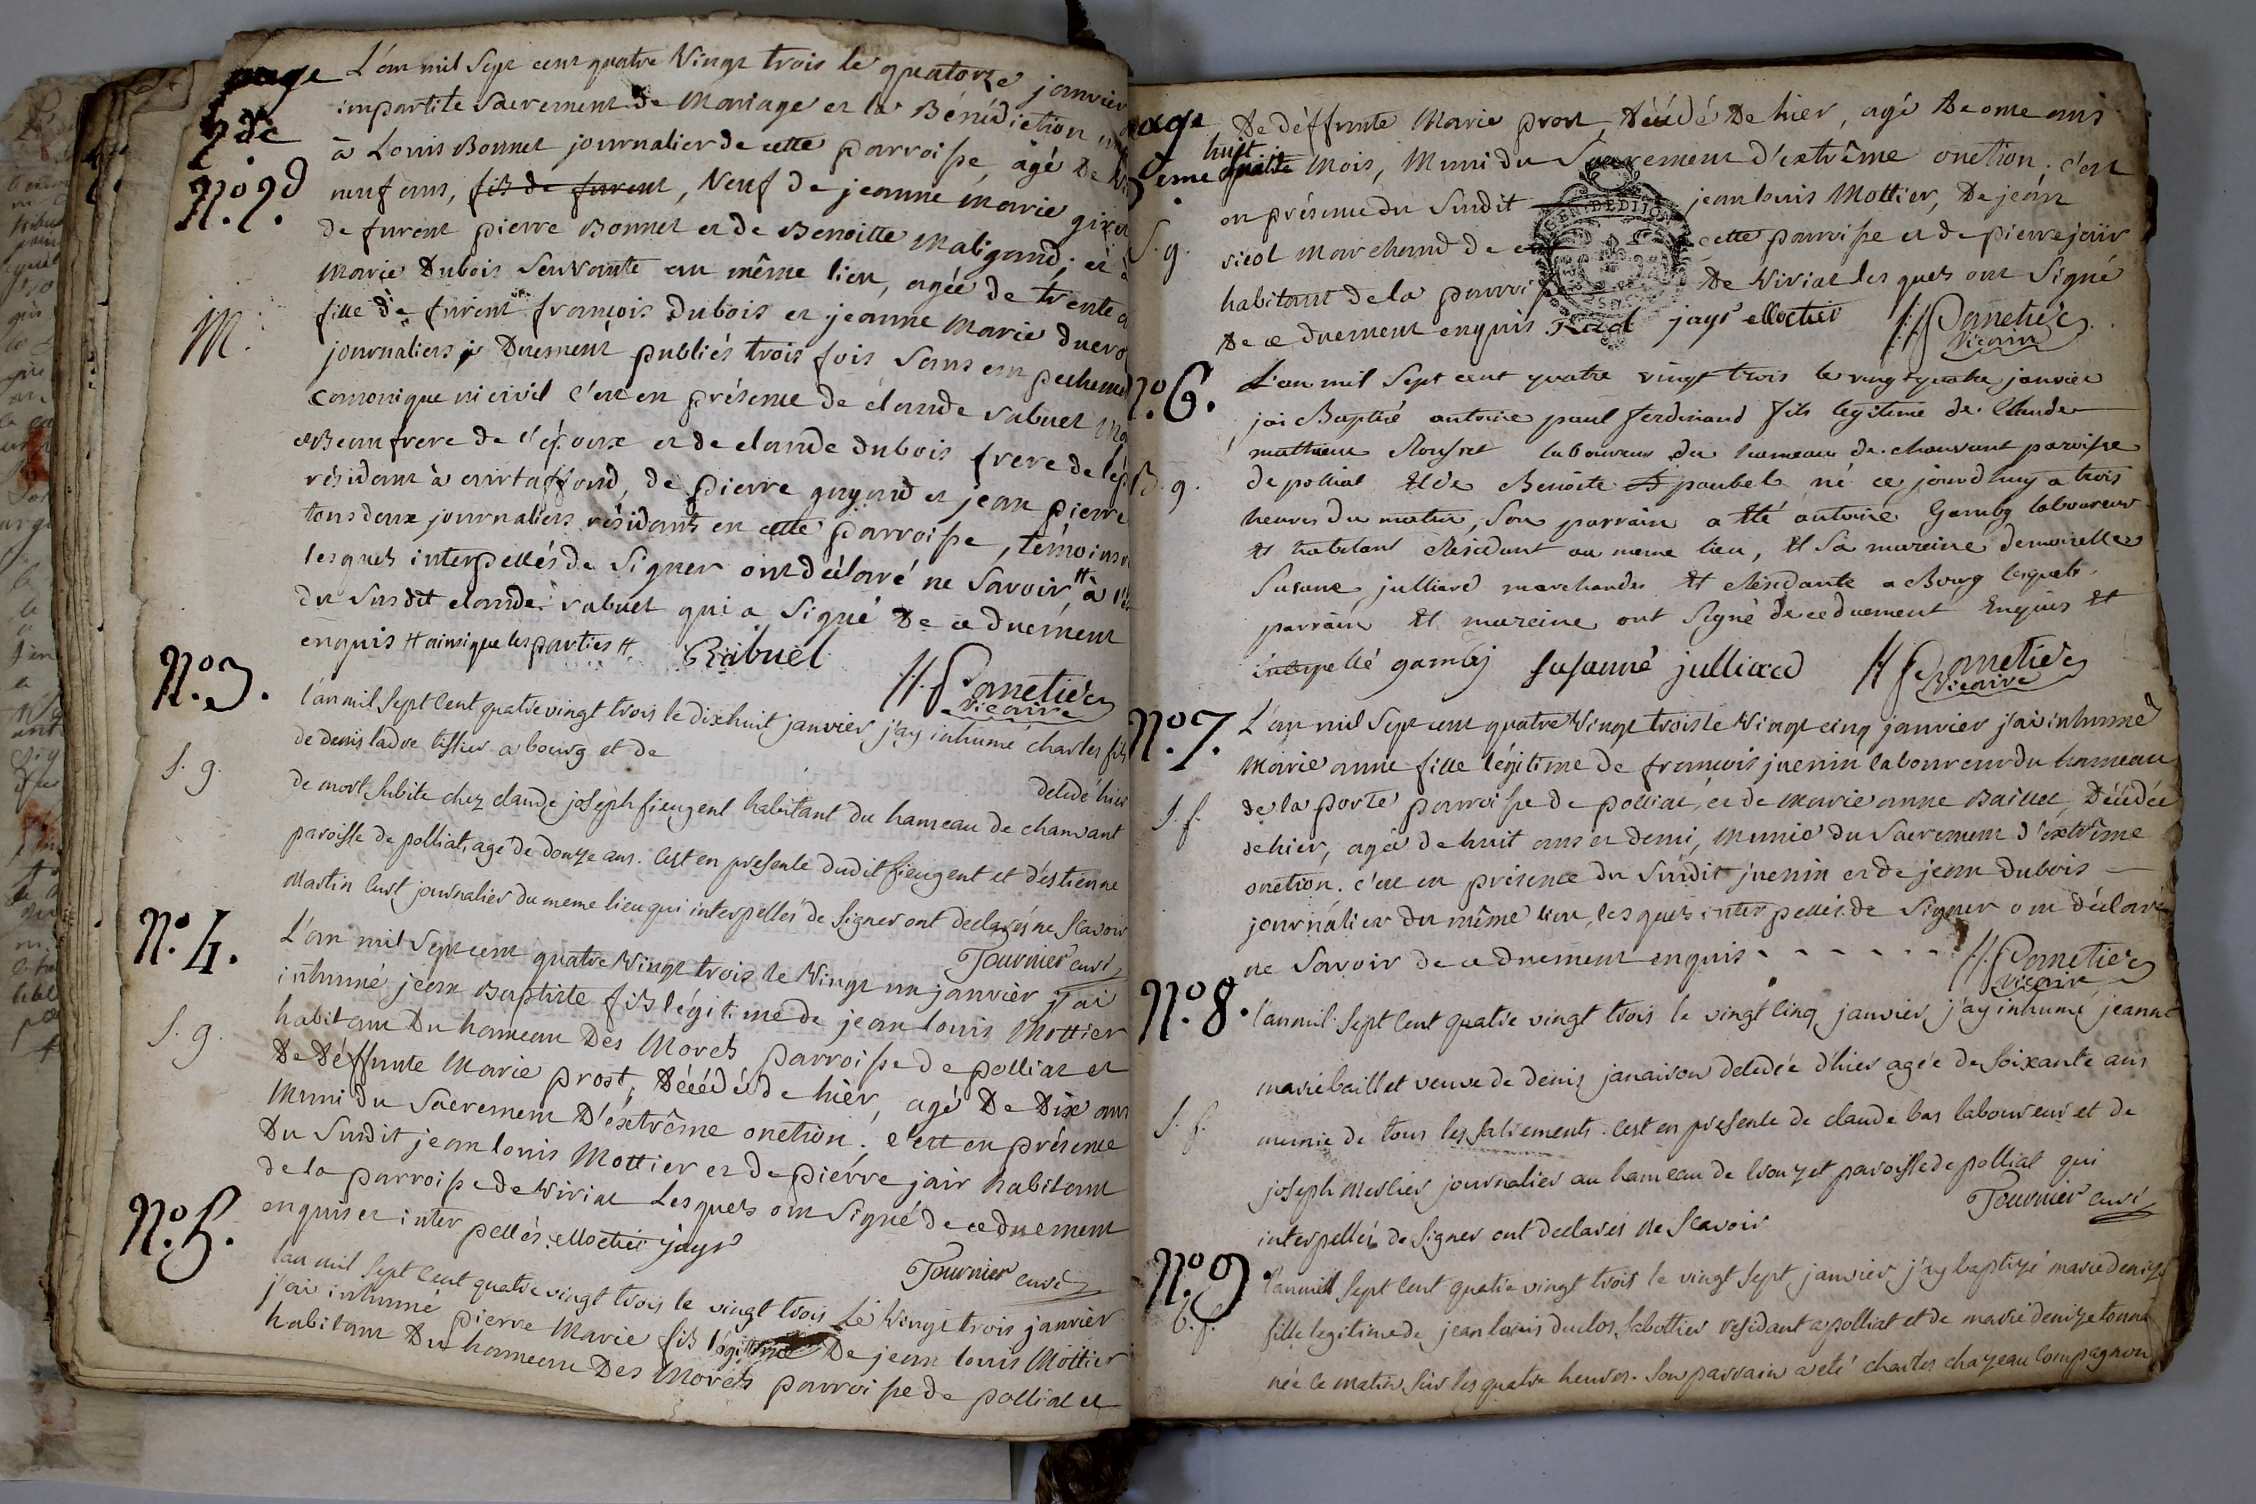 page
2de
L'an mil Sept cent quatre Vingt trois le quatorze janvier
impartite Sacrement de Mariage et la Bénédiction
N.o 2.d
à Louis Bonnet journalier de cette parroisse, agé de
neuf ans, fils de furent, Veuf de jeanne Marie
de furent pierre Bonnet et de Benoitte Maligand; et à
Marie Dubois Servante au même lieu, agée de trente
M.
fille de furent françois Dubois et jeanne Marie
journaliers Duement publiés trois fois Sans empechement
canonique ni civil c'est en présence de claude rabuel
et Beaufrere de l'époux et de claude dubois frere de
résidant à curtaffond, de pierre guyond et jean pierre
tous deux journaliers résidants en cette parroisse, témoins
lesquels interpellés de Signer ont déclaré ne Savoir, # à
du Susdit claude rabuel qui a Signé De ce duement
enquis # ainsi que les parties # Rabuel
H. Pometier
Vicaire
N.o 3.
l'an mil Sept cent quatre vingt trois le dixhuit janvier j'ay inhumé charles fils
de denis ladre tissier a bourg et de
S. g.
decedé hier
de mort Subite chez claude joseph fieugent habitant du hameau de chanvant
paroisse de polliat, agé de douze ans. C'est en presence dudit fieugent et d'estienne
Martin Curt journalier du meme lieu qui interpellés de Signer ont declarés ne Scavoir
Tournier curé
N.o 4.
L'an mil Sept cent quatre Vingt trois le Vingt un janvier j'ai
inhumé jean Baptiste fils légitime de jean louis Mottier
S. g.
habitant Du hameau Des Morets parroisse de polliat et
De Déffunte Marie prost, Décédé de hier, agé De Dix ans
Muni du Sacrement D'éxtrême onction. c'est en présence
Du Susdit jean louis Mottier et de pierre jair habitant
de la parroisse de Viriat Lesquels ont Signé de ce duement
enquis et inter pellés. Mottier jayr
Tournier curé
N.o 5.
l'an mil Sept Cent quatre vingt trois le vingt trois Le Vingt trois janvier
j'ai inhumé pierre Marie fils légitime De jean louis Mottier
habitant Du hameau Des Morets parroisse de polliat et
page
3eme
De déffunte Marie prost, décédé De hier, agé De onze ans
huit
quatre Mois, Muni du Sacrement d'extrême onction. c'est
en présence du Susdit jean louis Mottier, De jean
S. g.
vicol Marchand de cette parroisse et de pierre jair
habitant de la parroisse De Viriat lesquels ont Signé
De ce duement enquis jayr Mottier H. Pometier
Vicaire
GEN. DE DIJON
N.o 6.
L'an mil Sept cent quatre vingt trois le vingt quatre janvier
jai Baptisé antoine paul ferdinand fils legitime de Claude
matthieu Rousset laboureur du hameau de chanvant paroisse
B. g.
de polliat Et de Benoite paubel né ce jourdhuy a trois
heures du matin, Son parrain a Eté antoine Gamby laboureur
Et habitant Résidant au meme lieu, Et Sa mareine demoiselle
Susane julliard marchande Et Résidante a Bourg lesquels
parrain Et mareine ont Signé de ce duement Enquis Et
interpellé gamby susanne julliard H. Pometier
Vicaire
N.o 7.
L'an mil Sept cent quatre Vingt trois le Vingt cinq janvier j'ai inhumé
Marie anne fille légitime de francois juenin laboureur du hameau
S. f.
de la porte parroisse de polliat, et de Marie anne Baillet, Décédée
de hier, agée de huit ans et demi, Munie du Sacrement d'éxtrême
onction. c'est en présence du Susdit juenin et de jean Dubois
journalier du même lieu, lesquels interpellés de Signer ont déclaré
ne Savoir de ce duement enquis - - - - - - H. Pometier
Vicaire
N.o 8.
l'an mil Sept Cent quatre vingt trois le vingt Cinq janvier j'ay inhumé jeanne
marie baillet veuve de denis janaison decedée d'hier agée de soixante ans
S. f.
munie de tous les sacrements. c'est en presence de claude bas laboureur et de
joseph Meslier journalier au hameau de vouzet paroisse de polliat qui
interpellés de Signer ont declarés ne Scavoir Tournier curé
N.o 9
l'an mil Sept Cent quatre vingt trois le vingt Sept janvier j'ay baptizé marie denize
b. f.
fille legitime de jean louis duclos Sabottier residant a polliat et de marie denize
née ce Matin Sur les quatre heures. Son parrain a eté charles chazeau Compagnon